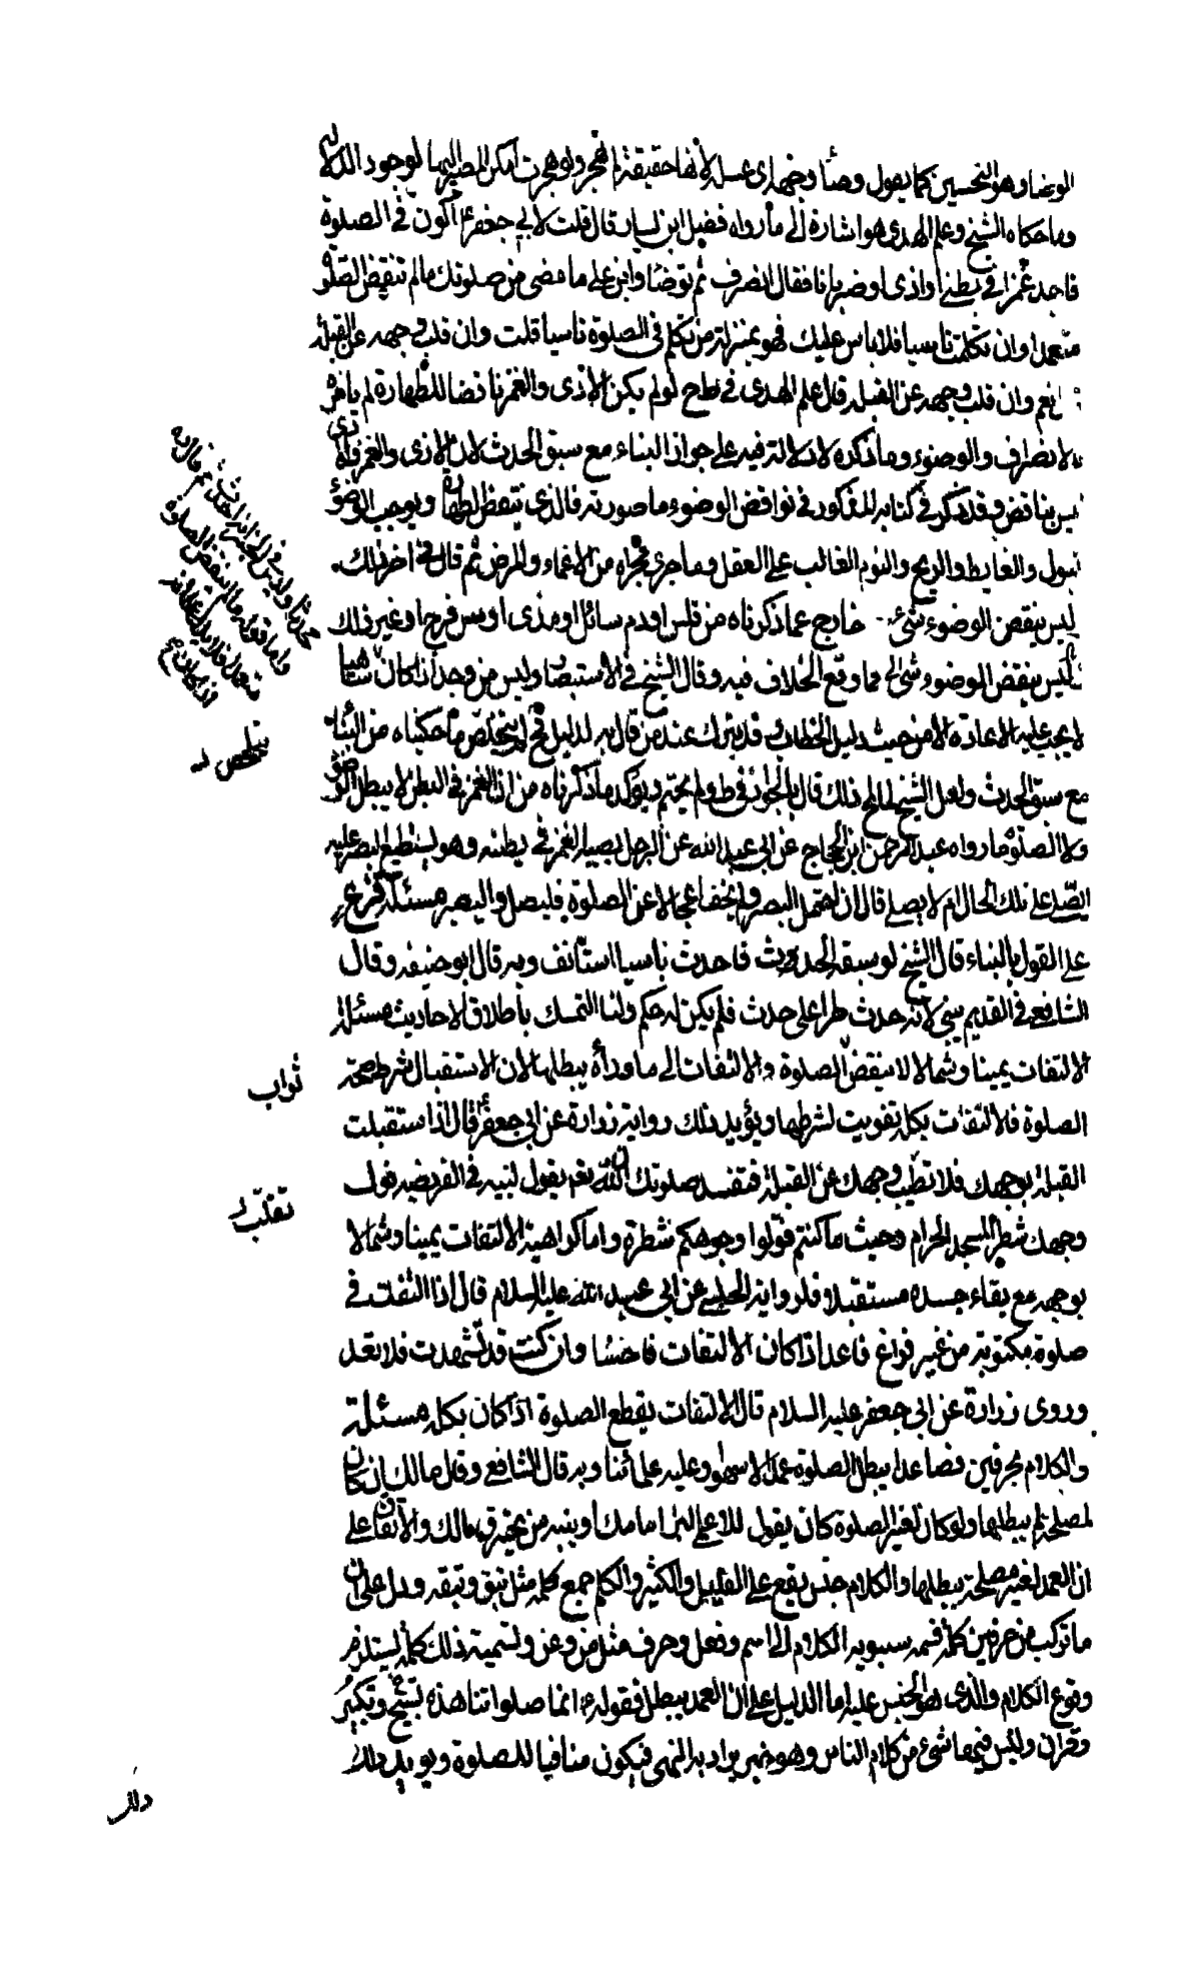 الوضاءة وهو التحسين كما يقول وضأ وجهه اى غسله لانها حقيقة لم تهجر ولو هجرت امكن المصير اليها لوجود الدلالة
وما حكاه الشيخ وعلم الهدى هو اشارة الى ما رواه فضيل ابن يسار قال قلت لابي جعفر ع اكون في الصلوة
فاجد غمزا في بطني او اذى او ضربانا فقال انصرف ثم توضا وابن على ما مضى من صلوتك مالم تنقض الصلوة
متعمدا وان تكلمت ناسيا فلا باس عليك فهو بمنزلة من تكلم في الصلوة ناسيا قلت وان قلب وجهه عن القبلة
نعم وان قلب وجهه عن القبلة قال علم الهدى في لو لم يكن الاذى والغمز ناقضا للطهارة لم يامره
بالانصراف والوضوء وما ذكره لا دلالة فيه على جواز البناء مع سبق الحدث لان الاذى والغمز
ليس بناقض وقد ذكر في كتابه المذكور في نواقض الوضوء ما صورته فالذى ينقض الطهارة ويوجب الوضوء
البول والغايط والريح والنوم الغالب على العقل وما جرى مجراه من الاغماء والمرض ثم قال في اخر ذلك
ليس ينقض الوضوء شيء خارج عما ذكرناه من قلس او دم سائل او مذى او مس فرج او غير ذلك
ليس ينقض الوضوء شئ مما وقع الخلاف فيه وقال الشيخ في الاستبصار وليس من وجد اذا كان ساهيا
لا يجب عليه الاعادة الا من حيث دليل الخطاب وقد يترك عند من قال به لدليل فح لم يتخلص ما حكيناه من البناء
مع سبق الحدث ولعل الشيخ لمح ذلك قال بالجواز في ط ولم يحتم ويؤكد ما ذكرناه من ان الغمز في البطن لا يبطل الوضوء
ولا الصلوة ما رواه عبد الرحمن ابن الحجاج عن ابي عبد الله عن الرجل يصيبه الغمز في بطنه وهو يستطيع الصبر عليه
ايصلى على تلك الحال ام لا يصلى قال ان احتمل الصبر ولم يخف اعجالا عن الصلوة فليصل وليصبر مسئلة فرع
على القول بالبناء قال الشيخ لو سبقه الحدث فاحدث ناسيا استأنف وبه قال ابو حنيفه وقال
الشافعى في القديم يبنى لانه حدث طرا على حدث فلم يكن له حكم ولنا التمسك باطلاق الاحاديث مسئلة
الالتفات يمينا وشمالا لا ينقض الصلوة والالتفات الى ما وراءه يبطلها لان الاستقبال شرط صحة
الصلوة فالالتفات بكله تفويت لشرطها ويؤيد ذلك رواية زرارة عن ابي جعفر ع قال اذا استقبلت
القبلة بوجهك فلا تقلب وجهك عن القبلة فتفسد صلوتك ان الله تعم يقول لنبيه في الفريضه فول
وجهك شطر المسجد الحرام وحيث ما كنتم فولوا وجوهكم شطره واما كراهية الالتفات يمينا وشمالا
بوجهه مع بقاء جسده مستقبلا فلرواية الحلبى عن ابى عبد الله عليه السلام قال اذا التفت في
صلوة مكتوبة من غير فراغ فاعد اذا كان الالتفات فاحشا وان كنت قد تشهدت فلا تعد
وروى زرارة عن ابي جعفر عليه السلام قال الالتفات يقطع الصلوة اذا كان بكله مسئلة
والكلام بحرفين فصاعدا يبطل الصلوة عمدا لا سهوا وعليه علمائنا وبه قال الشافعى وقال مالك ان كان
لمصلحة لم يبطلها ولو كان لغير الصلوة كان يقول للاعمى البئر امامك او ينبه من يحترق ماله والاتفاق على
ان العمد لغير مصلحة يبطلها والكلام جنس يقع على القليل والكثير والكلم جمع كلمة مثل نبق ونبقه ويدل على ان
ما تركب من حرفين كلمة قسمة سيبويه الكلام الى اسم وفعل وحرف مثل من وعن وتسمية ذلك كلمة يستلزم
وقوع الكلام والذى هو الجنس عليه اما الدليل على ان العمد يبطل فقوله ع انما صلواتنا هذه تسبيح وتكبير
وقران وليس فيها شئ من كلام الناس وهو خبر يراد به النهى فيكون منافيا للصلوة ويؤيد ذلك
يتلخص له
ثواب
تقلبك